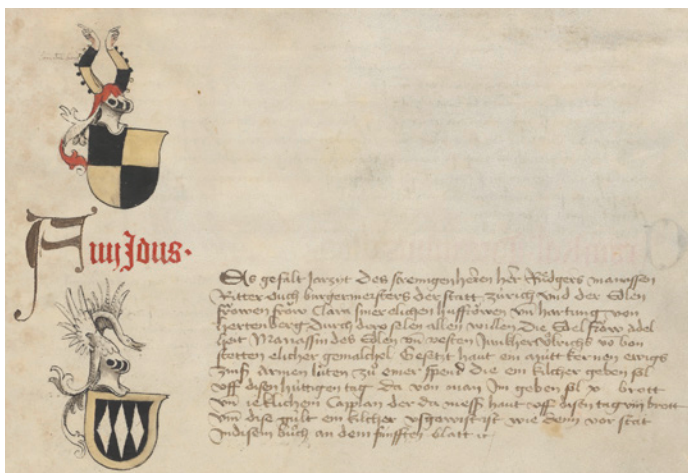 A iiij Idus.
Es gefalt Jarzyt des strengen herren herr Růdgers manissen
Ritter ouch burgermeisters der statt zürich vnd der Edlen
frowen frow Clara siner elichen husfröwen vn hartung von
hertenberg durch dero selen allen willen die Edel frow adel
heit Manassin des Edlen vn vesten Junkher Vͦlrichs vo bon
stetten elicher gemalchel Gesetzt haut ein mütt kernen ewigs
zinß armen lüten zu einer spend die ein kilcher geben sol
vff disen hüttigen tag da von man Im geben sol x brott
vn ieklichem Capplan der da mess haut vff disen tag viij brott
vnd dise gült ein kilcher vsgewist ist wie denn vor stat
Indisem bůch an dem fünfften blatt